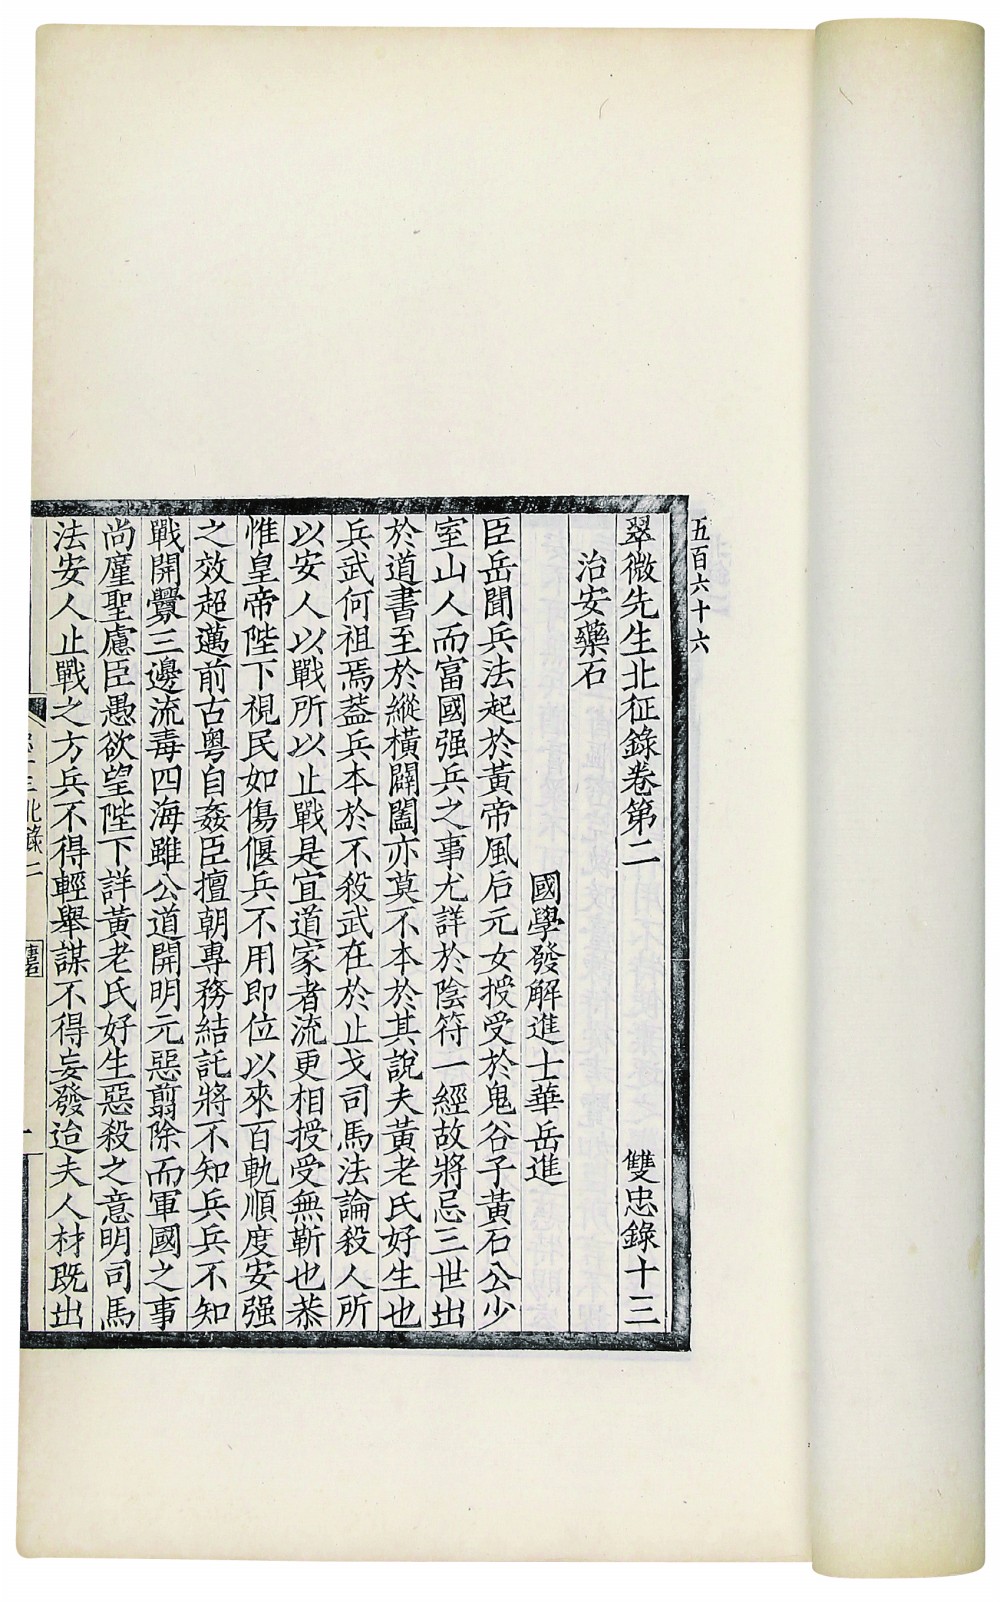 五百六十六
翠微先生北征錄卷第二 雙忠錄十三
治安藥石
國學發解進士華岳進
臣岳聞兵法起於黃帝風后元女授受於鬼谷子黃石公少
室山人而富國强兵之事尤詳於陰符一經故將忌三世出
於道書至於縱橫闢闔亦莫不本於其說夫黃老氏好生也
兵武何祖焉蓋兵本於不殺武在於止戈司馬法論殺人所
以安人以戰所以止戰是宜道家者流更相授受無靳也恭
惟皇帝陛下視民如傷偃兵不用即位以來百軌順度安强
之效超邁前古粵自姦臣擅朝專務結託將不知兵兵不知
戰開釁三邊流毒四海雖公道開明元惡翦除而軍國之事
尚廑聖慮臣愚欲望陛下詳黃老氏好生惡殺之意明司馬
法安人止戰之方兵不得輕舉謀不得妄發迨夫人材既出